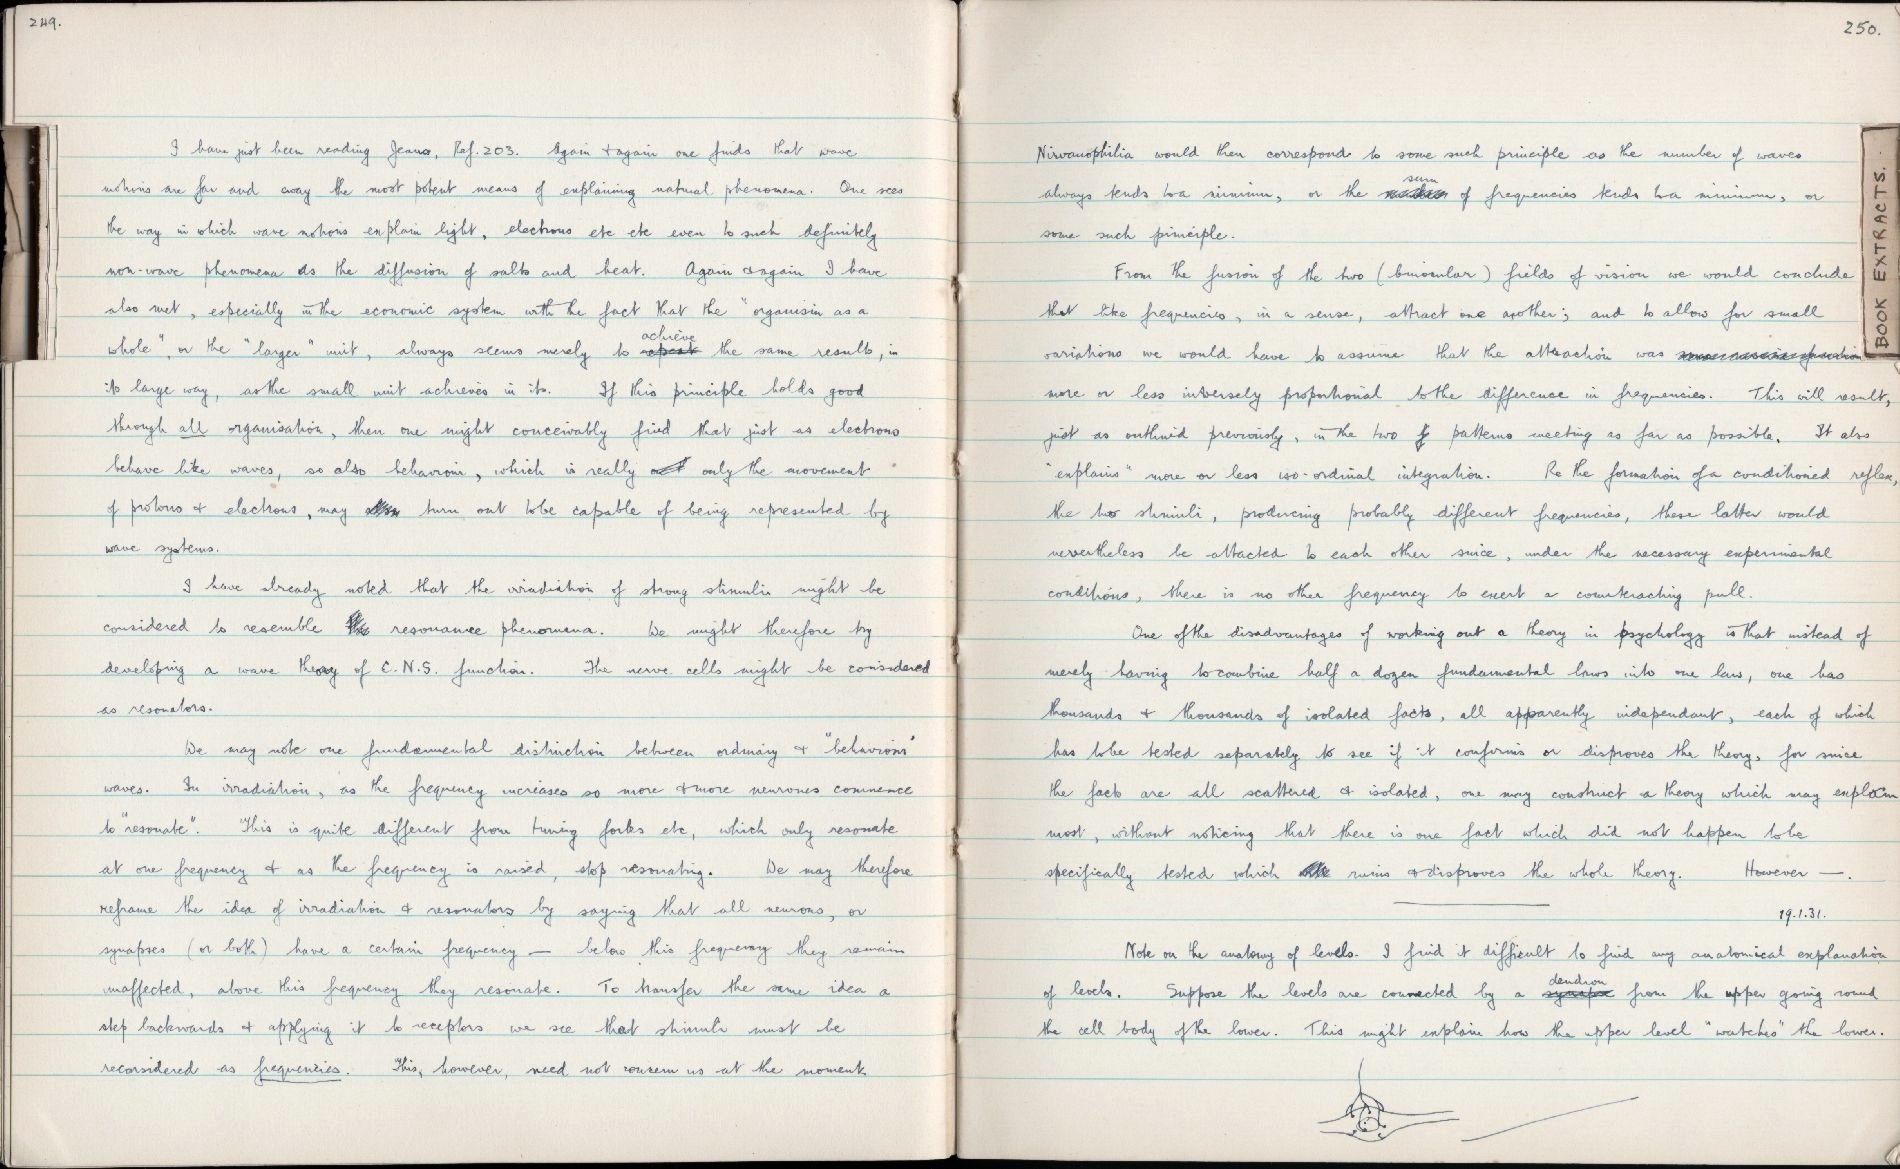 249.
I have just been reading Jeans, Ref. 203. Again & again one finds that wave
motions are far and away the most potent means of explaining natural phenomena. One sees
the way in which wave motions explain light, electrons etc etc even to such definitely
non-wave phenomena as the diffusion of salts and heat. Again & again I have
also met, especially in the economic system with the fact that the "organism as a
whole", or the "larger" unit, always seems merely to achieve the same results, in
its large way, as the small unit achieves in its. If this principle holds good
through all organisation, then one might conceivably find that just as electrons
behave like waves, so also behaviour, which is really only the movement
of protons & electrons, may turn out to be capable of being represented by
wave systems.
I have already noted that the irradiation of strong stimuli might be
considered to resemble resonance phenomena. We might therefore try
developing a wave theory of C.N.S. function. The nerve cells might be considered
as resonators.
We may note one fundamental distinction between ordinary & "behaviour"
waves. In irradiation, as the frequency increases so more & more neurones commence
to "resonate". This is quite different from tuning forks etc, which only resonate
at one frequency & as the frequency is raised, stop resonating. We may therefore
reframe the idea of irradiation & resonators by saying that all neurons, or
synapses (or both) have a certain frequency — below this frequency they remain
unaffected, above this frequency they resonate. To transfer the same idea a
step backwards & applying it to receptors we see that stimuli must be
reconsidered as frequencies. This, however, need not concern us at the moment.
250.
Nirvanophilia would then correspond to some such principle as the number of waves
always tends to a minimum, or the sum of frequencies tends to a minimum, or
some such principle.
From the fusion of the two (binocular) fields of vision we would conclude
that like frequencies, in a sense, attract one another; and to allow for small
variations we would have to assume that the attraction was
more or less inversely proportional to the difference in frequencies. This will result,
just as outlined previously, in the two patterns meeting as far as possible. It also
"explains" more or less iso-ordinal integration. Re the formation of a conditioned reflex,
the two stimuli, producing probably different frequencies, these latter would
nevertheless be attacted to each other since, under the necessary experimental
conditions, there is no other frequency to exert a counteracting pull.
One of the disadvantages of working out a theory in psychology is that instead of
merely having to combine half a dozen fundamental laws into one law, one has
thousands & thousands of isolated facts, all apparently independant, each of which
has to be tested separately to see if it confirms or disproves the theory, for since
the facts are all scattered & isolated, one may construct a theory which may explain
most, without noticing that there is one fact which did not happen to be
specifically tested which ruins & disproves the whole theory. However —.
19.1.31.
Note on the anatomy of levels. I find it difficult to find any anatomical explanation
of levels. Suppose the levels are connected by a dendron from the upper going round
the cell body of the lower. This might explain how the upper level "watches" the lower.
BOOK EXTRACTS.